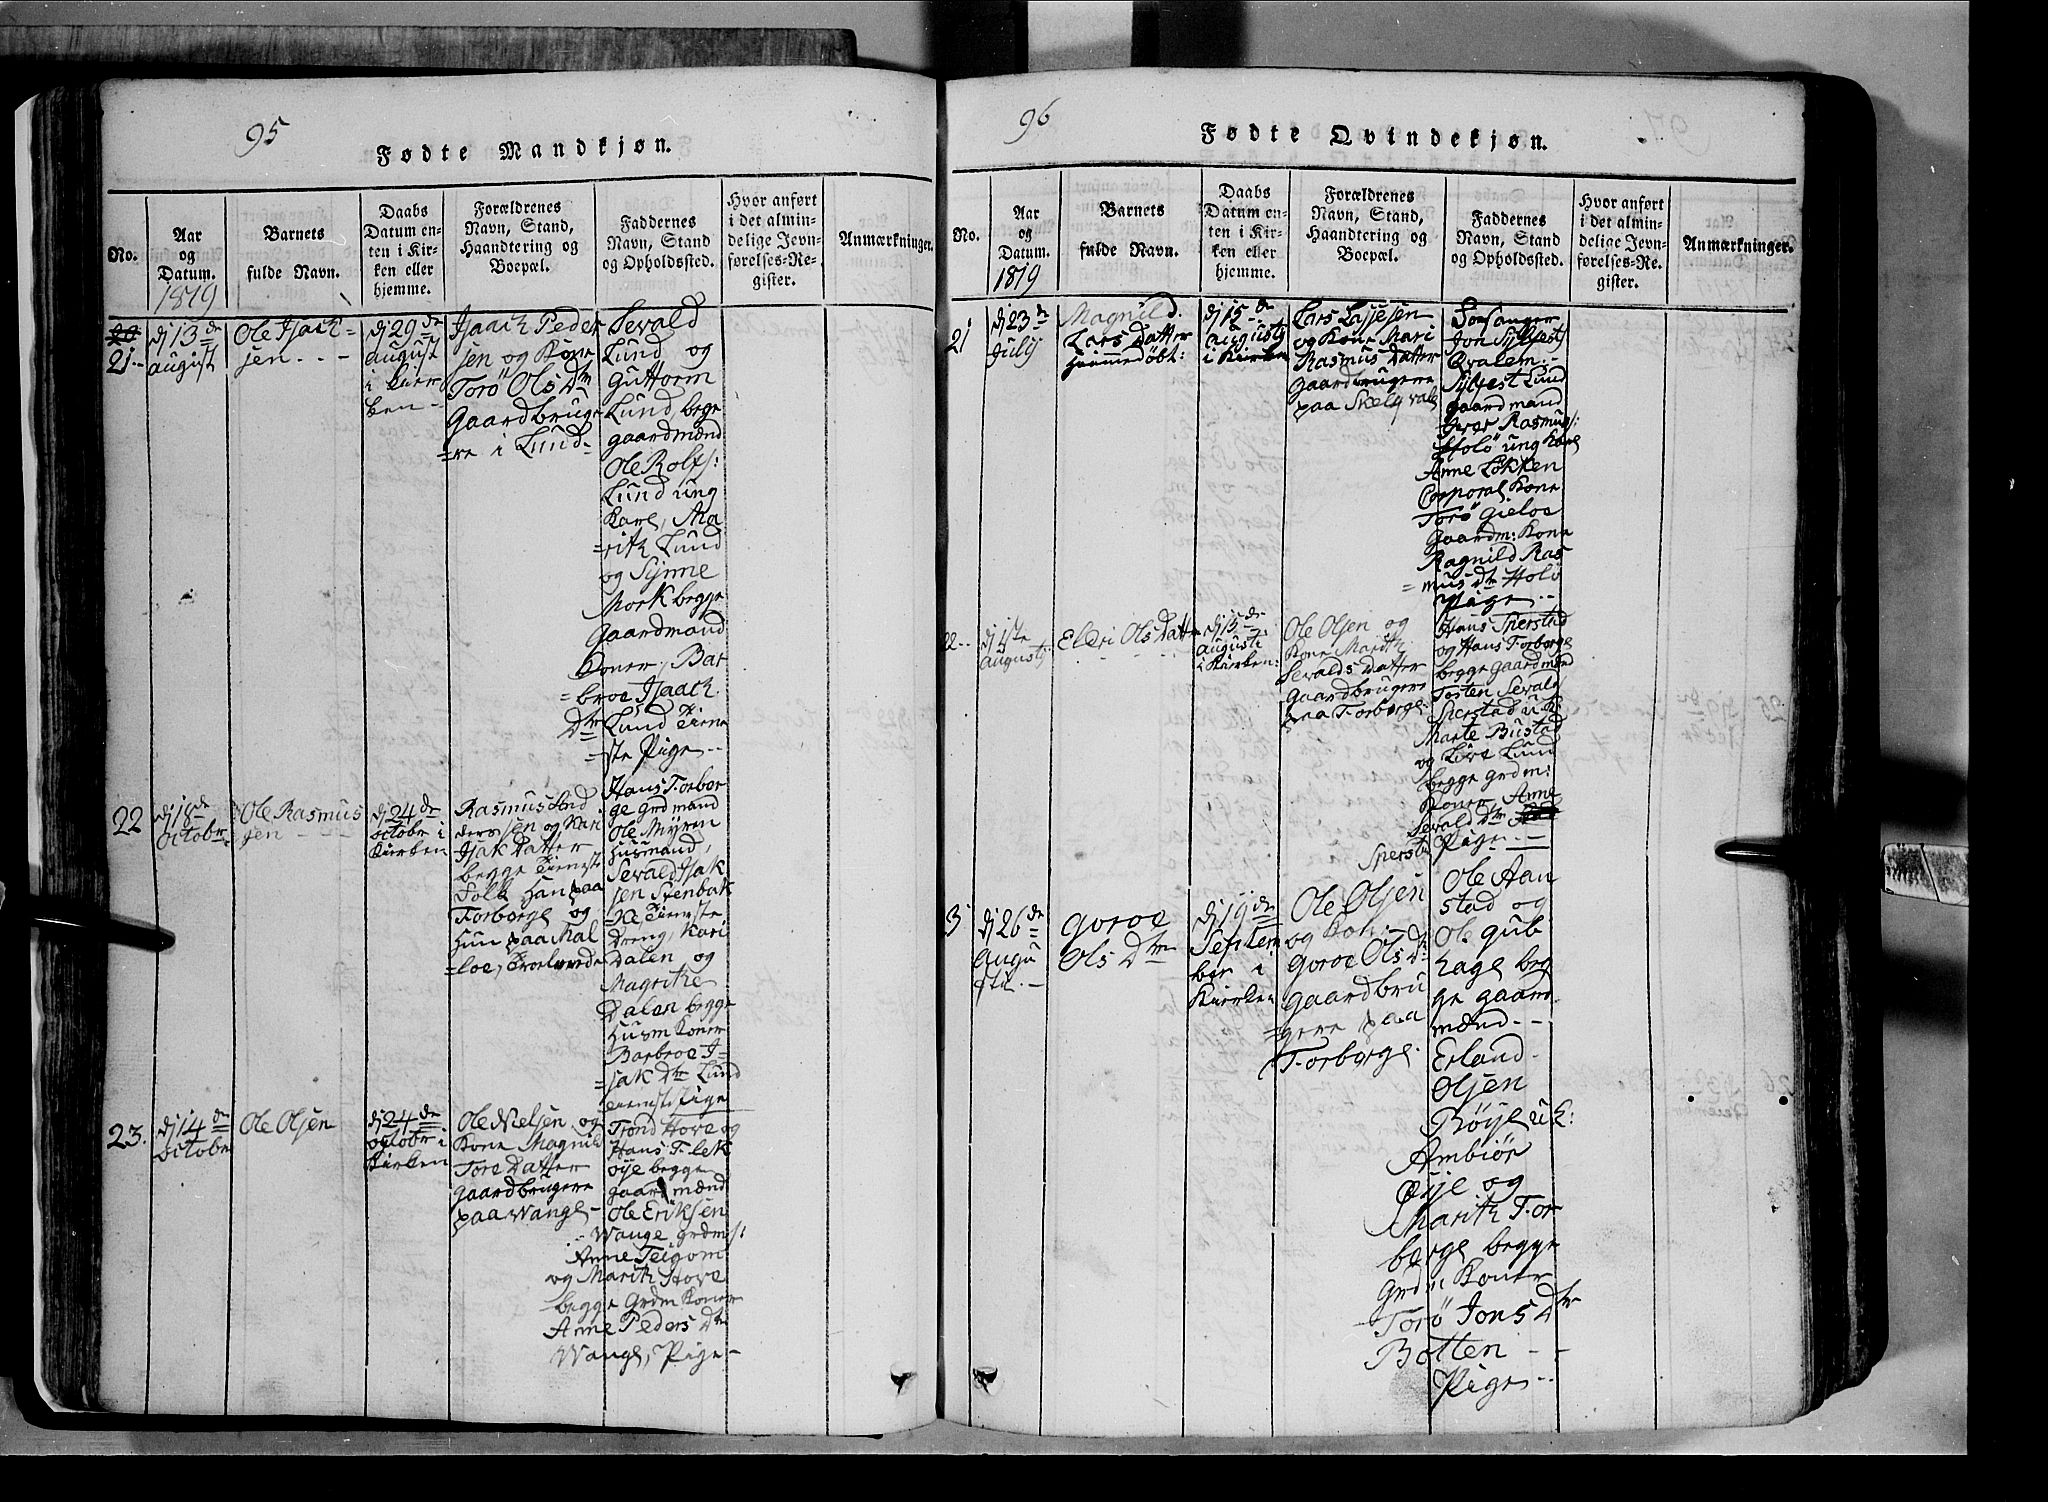 95
Fødte Mandkjøn.
No.
Aar
og
Datum.
1819
Barnets
fulde Navn.
Daabs
Datum en-
ten i Kir-
ken eller
hjemme.
Forældrenes
Navn, Stand,
Haandtering og
Boepæl.
Faddernes
Navn, Stand
og Opholdssted.
Hvor anført
i det almin-
delige Jevn-
førelses-Re-
gister.
Anmærkninger.
21
dj 13de
august
Ole Isach=
sen
dj 29de
august
i kirr
ken
Isaach Peder
sen og Kone
Torö Ols Dtr
Gaardbruge
=re i Lund
Sevald
Lund og
Guttorm
Lund begge
gaardmænd
Ole Rolfs:
Lund ung
Karl, Ma
=rith Lund
og Synne
Mork begge
Gaardmand
Koner, Bar
=broe Isaach
Dtr Lund Tiene
ste Pige
22
dj 18de
octobr
Ole Rasmus
sen
dj 24de
octobr i
Kirken
Rasmus And
ders sen og Kari
Isak Datter
begge Tieneste
Folk Han paa
Forborge og
Hun paa Mal
=loe,
Hans Forbor
ge grdmand
Ole Myren
Husmand,
Sevald Isak
sen Stenbak
=ke Tieneste
Dreng, Kari
Dalen og
Magrithe
Dalen begge
Husm Koner
Barbroe I=
=sak Dtr Lund
tieneste Pige
23.
dj 14de
octobr
Ole Olsen
dj 24de
octobr i
Kirken
Ole Nielsen og
Kone Magnild
Tore Datter
gaardbrugere
paa Wange
Trond Hove og
Hans Flek
øye begge
gaardmænd
Ole Eriksen
Wange grdms:
Anne Teigom
og Marith Hove
begge Grdm Koner
Anne Peders Dtr
Wange, Pige
96
Fødte Qvindekjøn.
No.
Aar
og
Datum.
1819
Barnets
fulde Navn.
Daabs
Datum en-
ten i Kir-
ken eller
hjemme.
Forældrenes
Navn, Stand,
Haandtering og
Boepæl.
Faddernes
Navn, Stand
og Opholdssted.
Hvor anført
i det almin-
delige Jevn-
førelses-Re-
gister.
Anmærkninger.
21
dj 23de
July
Magnild
Lars Datter
Hiemmedøbt:
dj 15de
augusty
i Kirken
Lars Lassesen
og Kone Mari
Rasmus Datter
Gaardbrugere
paa Skelqvale
Forsanger
Jon Sylfesty
Qvalem
Sylfest Lund
gaardmand
Iver Rasmus:
Holö ung Karl
Anne Løkken
Corporal Kone
Torö Gieloe
Gaardm: Kone
Ragnild Ras
=mus Dtr Holö
Pige
22
dj 1ste
Augusty
Eldri Ols Datter
dj 15de
Augusti
i Kirken:
Ole Olsen og
Kone Marith
Sevalds Datter
Gaardbrugere
paa Forborge
Hans Sperstad
og Hans Forborge
begge gaardmænd
Tosten Sevalds
Sperstad u: k:
Marte Bustad
og Live Lund
begge grdm:
Koner, Anne
Sevald Dtr
Sperstad Pige
3
dj 26de
Augu
sti
Goroe
Ols Dtr
dj 19de
Septem
ber i
Kierken
Ole Olsen
og Kone
Goroe Ols Dtr
Gaardbru
=gere paa
Forborge
Ole Aan
stad og
Ole Gub
hage beg
ge gaard
mænd
Erland
Olsen
Røyse u k:
Ambiör
Øye og
Marith For
borge begge
Grdm Koner
Torö Jons Dtr
Botten
Pige